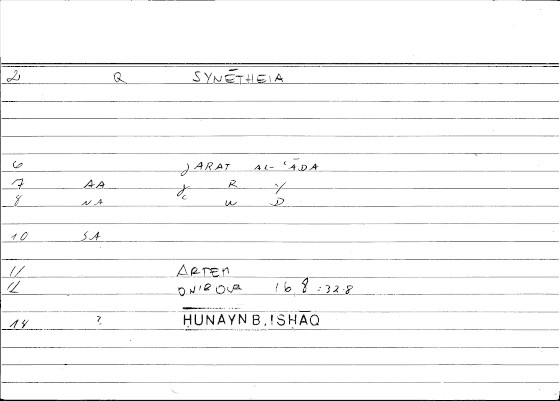 2 Q SYNĒTHEIA
6 JARAT AL-ʿĀDA
7 AA R Y
8 NA W D
10 SA
11 ARTEM
12 ONIROCR 16,8 : 32.8
14 ? HUNAYN B. ISHĀQ